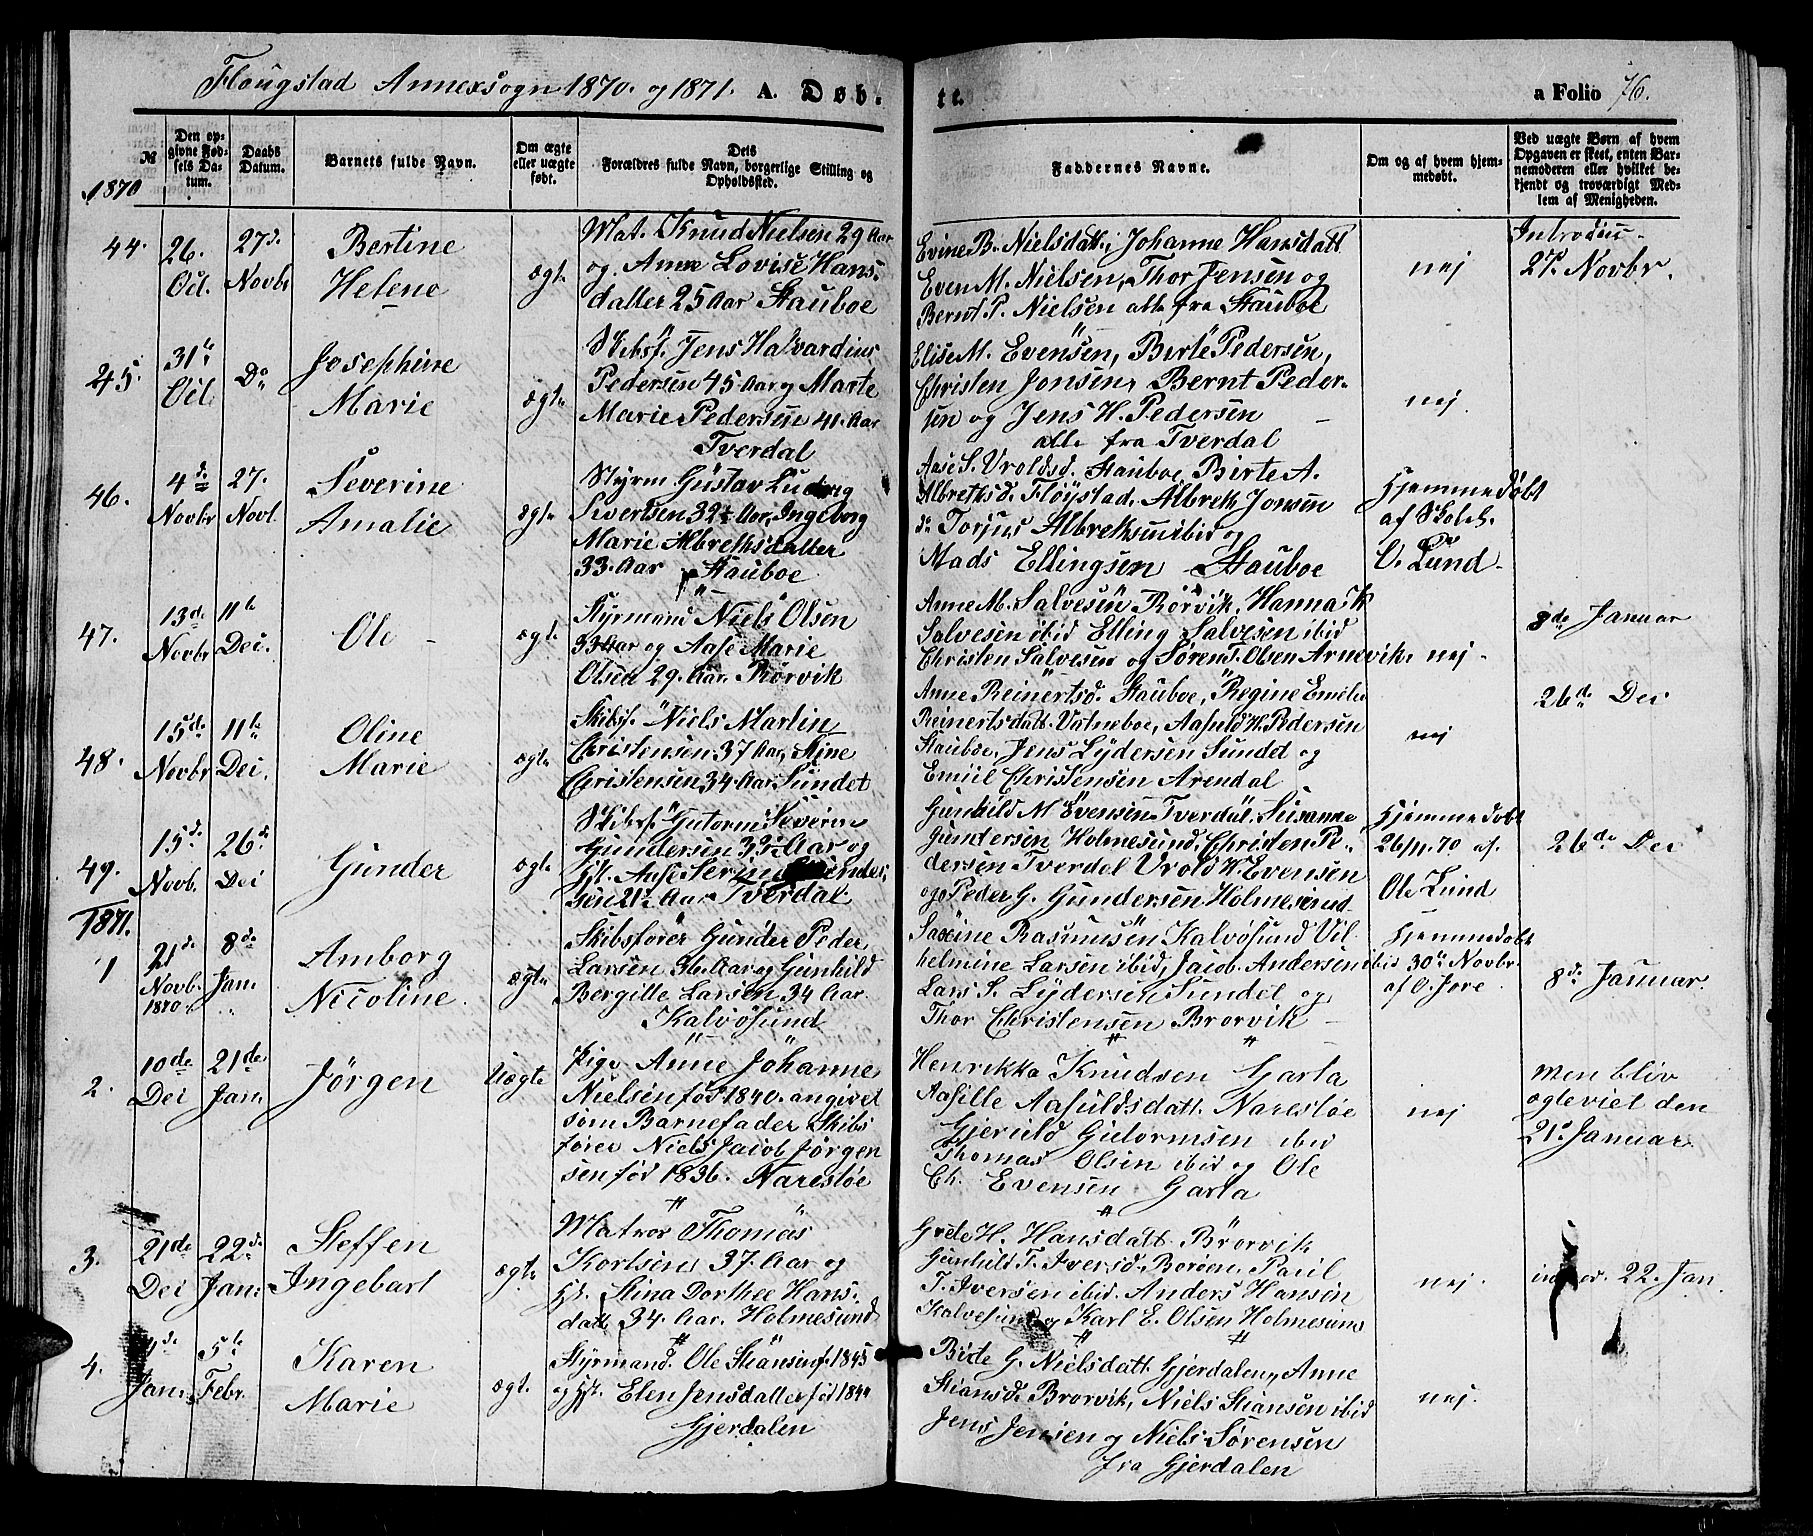 Flougstad Annexsogn 1870. og 1871. A. Døb-
te. a Folio 76.
№
Den op-
givne Fød-
sels Da-
tum.
Daabs
Datum.
Barnets fulde Navn.
Om ægte
eller uægte
født.
Dets
Forældres fulde Navn, borgerlige Stilling og
Opholdssted.
Faddernes Navne.
Om og af hvem hjem-
medøbt.
Ved uægte Børn af hvem
Opgaven er skeet, enten Bar-
nemoderen eller hvilket be-
kjendt og troværdigt Med-
lem af Menigheden.
1870
44.
26.
Oct.
27d.
Novbr
Bertine
Helene
ægte
Mat. Knud Nielsen 29 Aar
og Anne Lovise Hans-
datter 25 Aar Stauboe
Evine B. Nielsdatt, Johanne Hansdatt
Even M. Nielsen, Thor Jensen og
Bernt P. Nielsen alle fra Stauboe
nej
Introdu-
27. Novbr.
45.
31te
Oct
Do
Josephine
Marie
ægte
Skibsf. Jens Halvardius
Pedersen 45 Aar og Marte
Marie Pedersen 41. Aar
Tverdal
Elise M. Evensen, Birte Pedersen,
Christen Jonsen, Bernt Peder-
sen og Jens H. Pedersen
alle fra Tverdal
nej.
46.
4de
Novbr
27.
Novb.
Severine
Amalie
ægte
Styrm Gustav Ludvig
Sivertsen 32½ Aar, Ingeborg
Marie Albretksdatter
33. Aar Stauboe
Aase S. Vroldsd. Stauboe Birte A.
Albretksd. Fløystad. Albrek Jonsen
do Torjus Albreksen ibid og
Mads Ellingsen Stauboe
Hjemmedøbt
af Skoleh.
O. Lund
47.
13de
Novbr
11te
Dec.
Ole
ægte
Styrmand Niels Olsen
33 Aar og Aase Marie
Olsen 29. Aar. Rørvik
Anne M. Salvesen Rørvik, Hanna K
Salvesen ibid Elling Salvesen ibid
Christen Salvesen og Søren T. Olsen Arnevik.
nej
8de Januar
48.
15de
Novbr
11te
Dec.
Oline
Marie
ægte
Skibsf. Niels Martin
Christensen 37 Aar, Stine
Christensen 34. Aar Sundet
Anne Reinertsd. Stauboe, Regine Emelie
Reinertsdatt. Vatneboe, Aasuld K. Pedersen
Stauboe, Jens Lydersen Sundet og
Emiil Christensen Arendal
nej
26de Dec
49.
15de
Novb.
26de
Dec
Gunder
ægte
Skibsf. Gutorm Severin
Gundersen 33½ Aar og
Hst. Aase Serine Gunder-
sen 21½ Aar Tverdal
Gunhild M Evensen Tverdal. Susanne
Gundersen Holmesund, Christen Pe-
dersen Tverdal Vrold W. Evensen
og Peder G. Gundersen Holmesund
Hjemmedøbt
26/11. 70 af
Ole Lund
26de Dec
1871.
1
21de
Novb.
1870
8de
Jan.
Amborg
Nicoline
ægte
Skibsfører Gunder Peder
Larsen 36. Aar og Gunhild
Bergitte Larsen 34 Aar
Kalvøsund
Rasmusen Kalvøsund Vil-
helmine Larsen ibid, Jacob Andersen ibid
Lars S. Lydersen Sundet og
Thor Christensen Brorvik
Hjemmedøbt
30te Novbr.
af O. Jore
8de Januar
2.
10de
Dec
21de
Jan.
Jørgen
Uægte
Pige Anne Johanne
Nielsen fød 1840. angivet
som Barnefader Skibs
fører Niels Jacob Jørgen
sen fød 1836. Naresløe
Henrikka Knudsen Garta
Aasille Aasuldsdatt. Naresløe
Gjeruld Gutormsen ibid
Thomas Olsen ibid og Ole
Ch. Evensen Garta
nej
Men bliv
ægteviet den
21de Januar
3.
21de
Dec
22de
Jan.
Steffen
Ingebart
ægte
Matros Thomas
Kortsen 37. Aar og
Hst. Stina Dorthee Hans-
datt 34. Aar. Holmesund
Grete H. Hansdatt. Brorvik
Gunhild T. Iversd. Borøen. Paul
T. Iversen ibid. Anders Hansen
Kalvesund og Karl E. Olsen Holmesund
nej.
22. Jan
4.
Jan.
5te
Febr.
Karen
Marie
ægt.
Styrmand. Ole Stiansen f. 1845
og Hst. Elen Jensdatter fød 1844
Gjerdalen
Birte G. Nielsdatt. Gjerdalen, Anne
Stiansd. Brorvik, Niels Stiansen ibid
Jens Jensen og Niels Sørensen
fra Gjerdalen
nej.